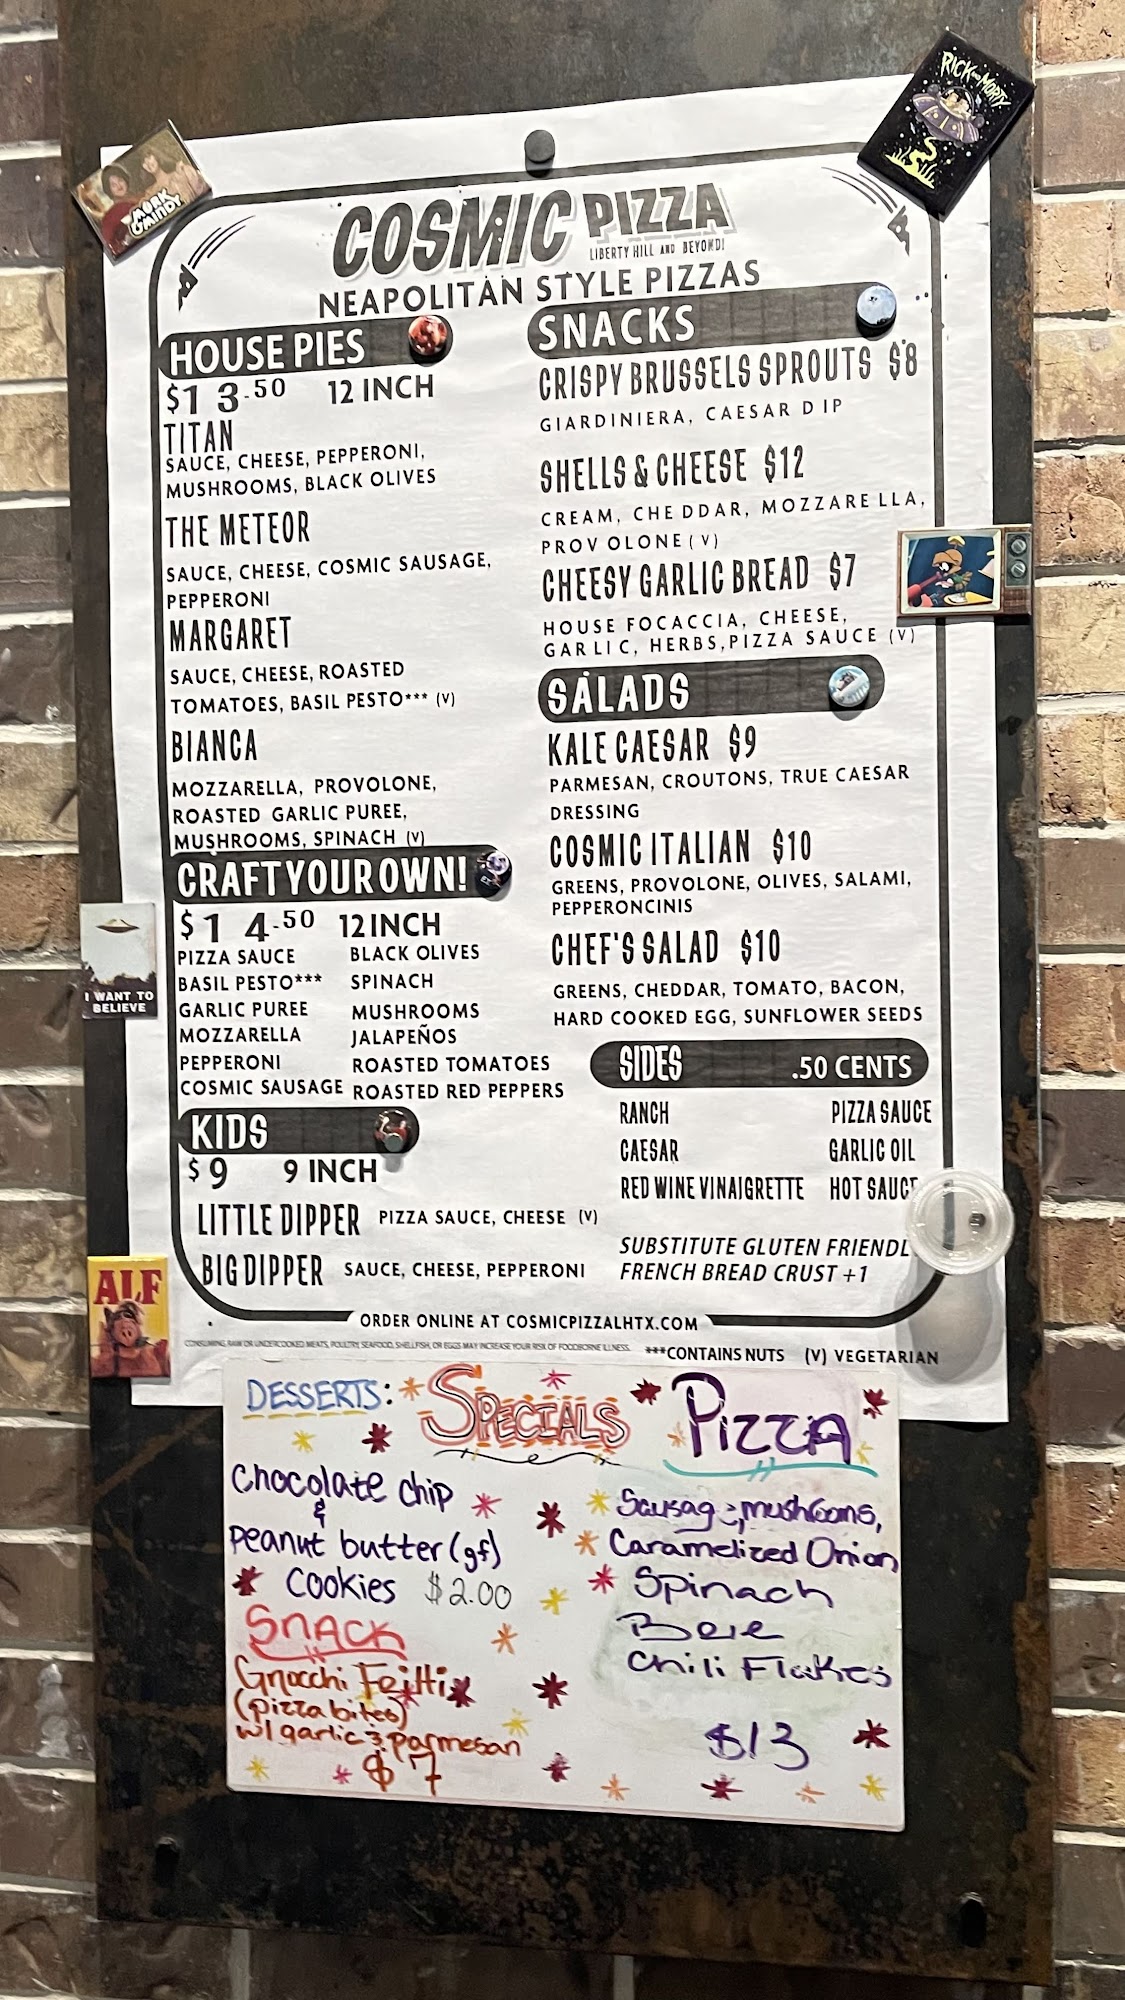 RICK AND MORTY
MORK
& MINDY
COSMIC PIZZA
LIBERTY HILL AND BEYOND!
NEAPOLITAN STYLE PIZZAS
HOUSE PIES
$13.50 12 INCH
TITAN
SAUCE, CHEESE, PEPPERONI,
MUSHROOMS, BLACK OLIVES
THE METEOR
SAUCE, CHEESE, COSMIC SAUSAGE,
PEPPERONI
MARGARET
SAUCE, CHEESE, ROASTED
TOMATOES, BASIL PESTO*** (V)
BIANCA
MOZZARELLA, PROVOLONE,
ROASTED GARLIC PUREE,
MUSHROOMS, SPINACH (V)
CRAFT YOUR OWN!
$14.50 12 INCH
PIZZA SAUCE BLACK OLIVES
BASIL PESTO*** SPINACH
GARLIC PUREE MUSHROOMS
MOZZARELLA JALAPEÑOS
PEPPERONI ROASTED TOMATOES
COSMIC SAUSAGE ROASTED RED PEPPERS
KIDS
$9 9 INCH
LITTLE DIPPER PIZZA SAUCE, CHEESE (V)
BIG DIPPER SAUCE, CHEESE, PEPPERONI
SNACKS
CRISPY BRUSSELS SPROUTS $8
GIARDINIERA, CAESAR DIP
SHELLS & CHEESE $12
CREAM, CHEDDAR, MOZZARELLA,
PROVOLONE (V)
CHEESY GARLIC BREAD $7
HOUSE FOCACCIA, CHEESE,
GARLIC, HERBS, PIZZA SAUCE (V)
SALADS
KALE CAESAR $9
PARMESAN, CROUTONS, TRUE CAESAR
DRESSING
COSMIC ITALIAN $10
GREENS, PROVOLONE, OLIVES, SALAMI,
PEPPERONCINIS
CHEF'S SALAD $10
GREENS, CHEDDAR, TOMATO, BACON,
HARD COOKED EGG, SUNFLOWER SEEDS
SIDES .50 CENTS
RANCH PIZZA SAUCE
CAESAR GARLIC OIL
RED WINE VINAIGRETTE HOT SAUCE
SUBSTITUTE GLUTEN FRIENDL
FRENCH BREAD CRUST +1
ORDER ONLINE AT COSMICPIZZALHTX.COM
CONSUMING RAW OR UNDERCOOKED MEATS, POULTRY, SEAFOOD, SHELLFISH, OR EGGS MAY INCREASE YOUR RISK OF FOODBORNE ILLNESS.
***CONTAINS NUTS (V) VEGETARIAN
I WANT TO
BELIEVE
ALF
SPECIALS
DESSERTS:
Chocolate chip
&
Peanut butter (gf)
Cookies $2.00
SNACK
Gnocchi
(pizza bites)
w/ garlic & parmesan
$7
PIZZA
Sausage, mushrooms,
Caramelized Onion
Spinach
Chili Flakes
$13